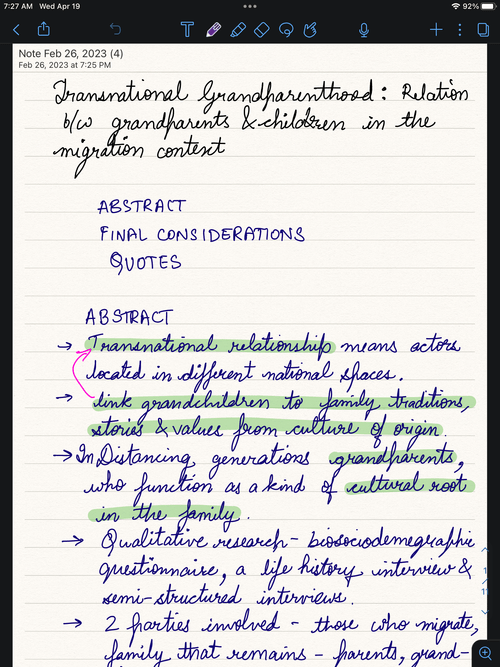 7:27 AM Wed Apr 19
92%
Note Feb 26, 2023 (4)
Feb 26, 2023 at 7:25 PM
Transnational Grandparenthood: Relation
b/w grandparents & children in the
migration context
ABSTRACT
FINAL CONSIDERATIONS
QUOTES
ABSTRACT
→ Transnational relationship means actors
located in different national spaces.
→ link grandchildren to family traditions,
stories & values from culture of origin.
→ In Distancing generations grandparents,
who function as a kind of cultural root
in the family.
→ Qualitative research - biosociodemographic
questionnaire, a life history interview &
semi-structured interviews.
→ 2 parties involved - those who migrate,
family that remains - parents, grand-